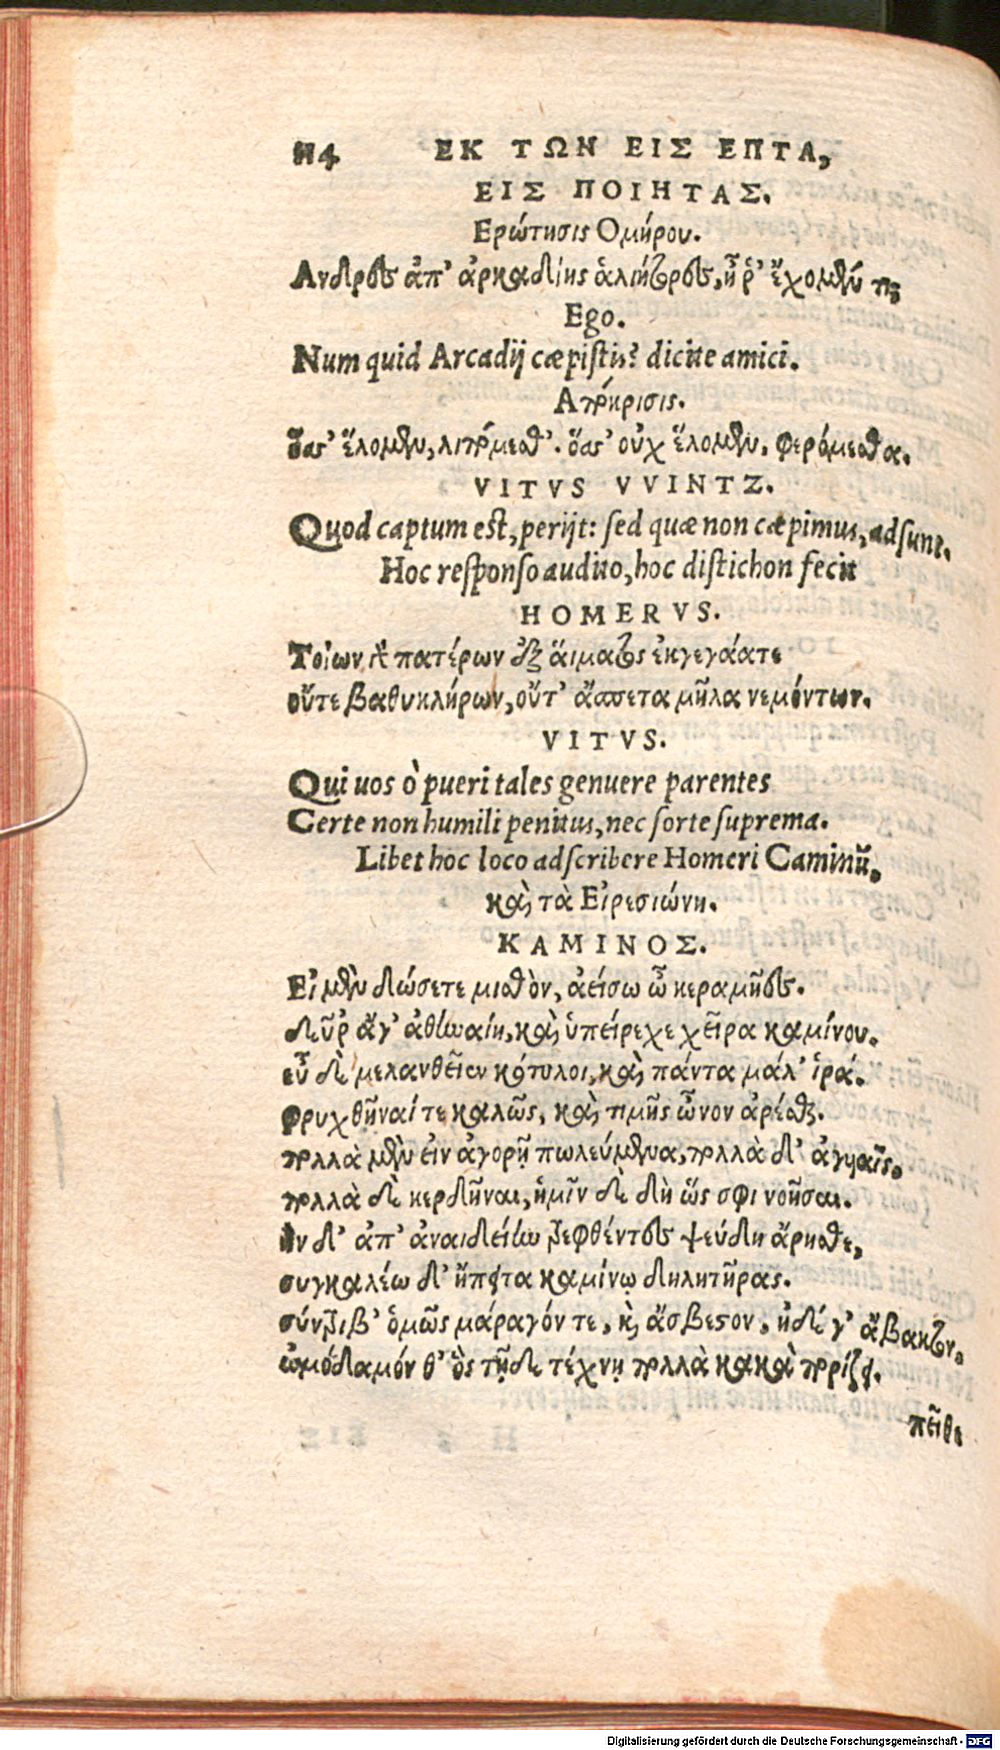 114 ΕΚ ΤΩΝ ΕΙΣ ΕΠΤΑ,
ΕΙΣ ΠΟΙΗΤΑΣ.
Ερώτησις Ομήρου.
Ανδρες ἀπ' ἀρκαδίης ἁλιήτορες, ἦ ῥ' ἔχομέν τι;
Ego.
Num quid Arcadij cæpistis? dicite amici.
Απόκρισις.
ὅσσ' ἕλομεν, λιπόμεσθ'. ὅσσ' οὐχ ἕλομεν, φερόμεσθα.
VITVS VVINTZ.
Quod captum est, perijt: sed quæ non cæpimus, adsunt.
Hoc responso audito, hoc distichon fecit
HOMERVS.
Τοίων γὰρ πατέρων ἐξ αἵματος ἐκγεγάατε
οὔτε βαθυκλήρων, οὔτ' ἄσπετα μῆλα νεμόντων.
VITVS.
Qui uos ὸ pueri tales genuere parentes
Certe non humili penitus, nec sorte suprema.
Libet hoc loco adscribere Homeri Caminũ.
καὶ τὰ Εἰρεσιώνη.
ΚΑΜΙΝΟΣ.
Εἰ μὲν δώσετε μισθὸν, ἀείσω ὦ κεραμῆες.
δεῦρ ἄγ' ἀθηναίη, καὶ ὑπείρεχε χεῖρα καμίνου.
εὖ δὲ μελανθεῖεν κότυλοι, καὶ πάντα μάλ' ἱρά.
φρυχθῆναί τε καλῶς, καὶ τιμῆς ὦνον ἀρέσθαι.
πολλὰ μὲν εἰν ἀγορῇ πωλεύμενα, πολλὰ δ' ἀγυιαῖς.
πολλὰ δὲ κερδῆναι, ἡμῖν δὲ δὴ ὥς σφι νοῆσαι.
ἢν δ' ἀπ' ἀναιδείην τρεφθέντες ψεύδη ἄρησθε,
συγκαλέω δ' ἤπειτα καμίνῳ δηλητῆρας.
σύντριβ' ὁμῶς μάραγόν τε, καὶ ἄσβεστον, ἠδέ γ' ἄβακτον.
ὠμόδαμόν θ' ὃς τῇδε τέχνῃ πολλὰ κακὰ πορίζει.
πεῖθε
Digitalisierung gefördert durch die Deutsche Forschungsgemeinschaft - DFG